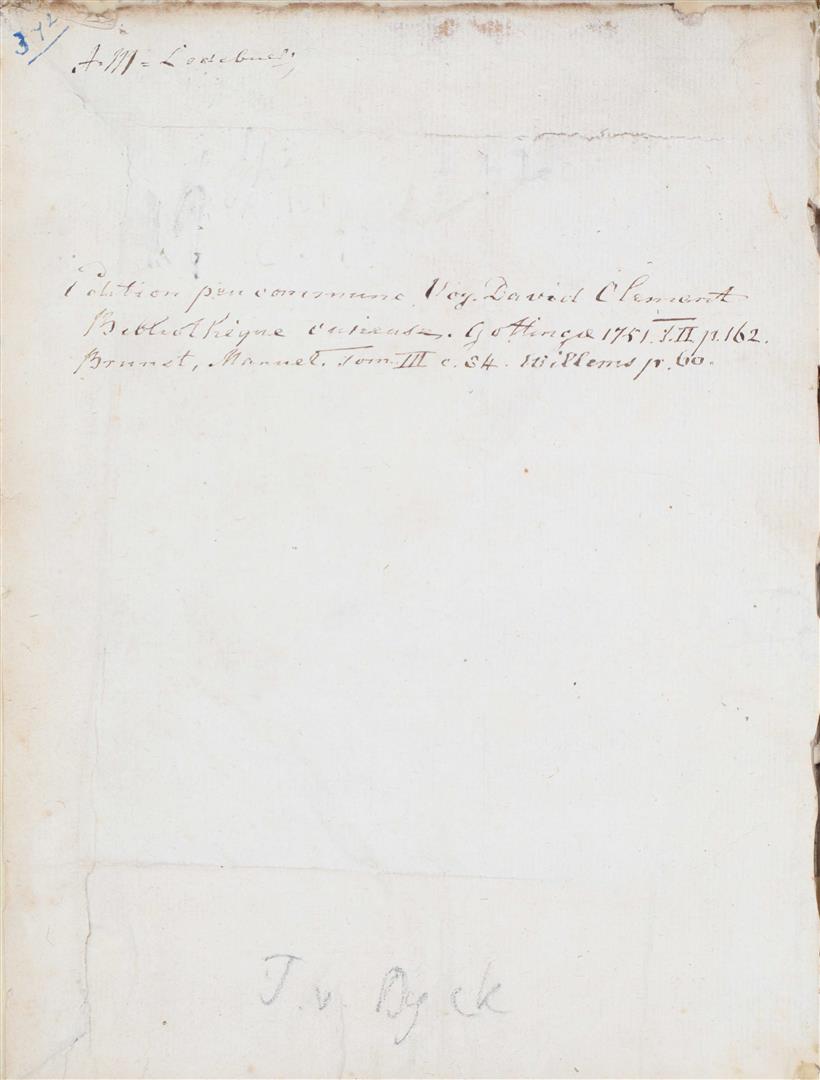 372
A M = Ledebuer,
Edition peu commune Voy. David Clement
Bibliothèque curieuse. Gottingæ 1751. T.II p.162.
Brunet, Manuel. Tom. III c. 84. Willems p. 60.
J. v. Dyck